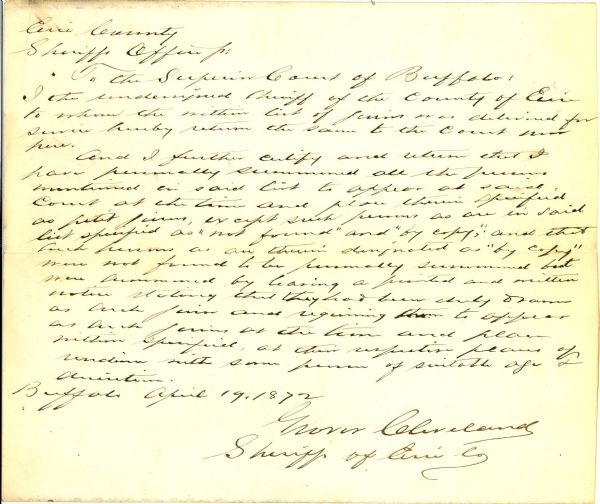 Erie County
Sheriffs Office ss:
To the Superior Court of Buffalo:
I the undersigned Sheriff of the County of Erie
to whom the within list of jurors was delivered for
service hereby return the same to the Court now
here.
And I further certify and return that I
have personally summoned all the persons
mentioned in said list to appear at said
Court at the time and place therein specified
as petit jurors, except such persons as are in said
list specified as "not found" and "by copy"; and that
such persons as are therein designated as "by copy"
were not found to be personally summoned but
were summoned by leaving a printed and written
notice stating that they had been duly drawn
as such juror and requiring them to appear
as such jurors at the time and place
within specified, at their respective places of
residence with some person of suitable age &
discretion.
Buffalo April 19, 1872
Grover Cleveland
Sheriff of Erie Co